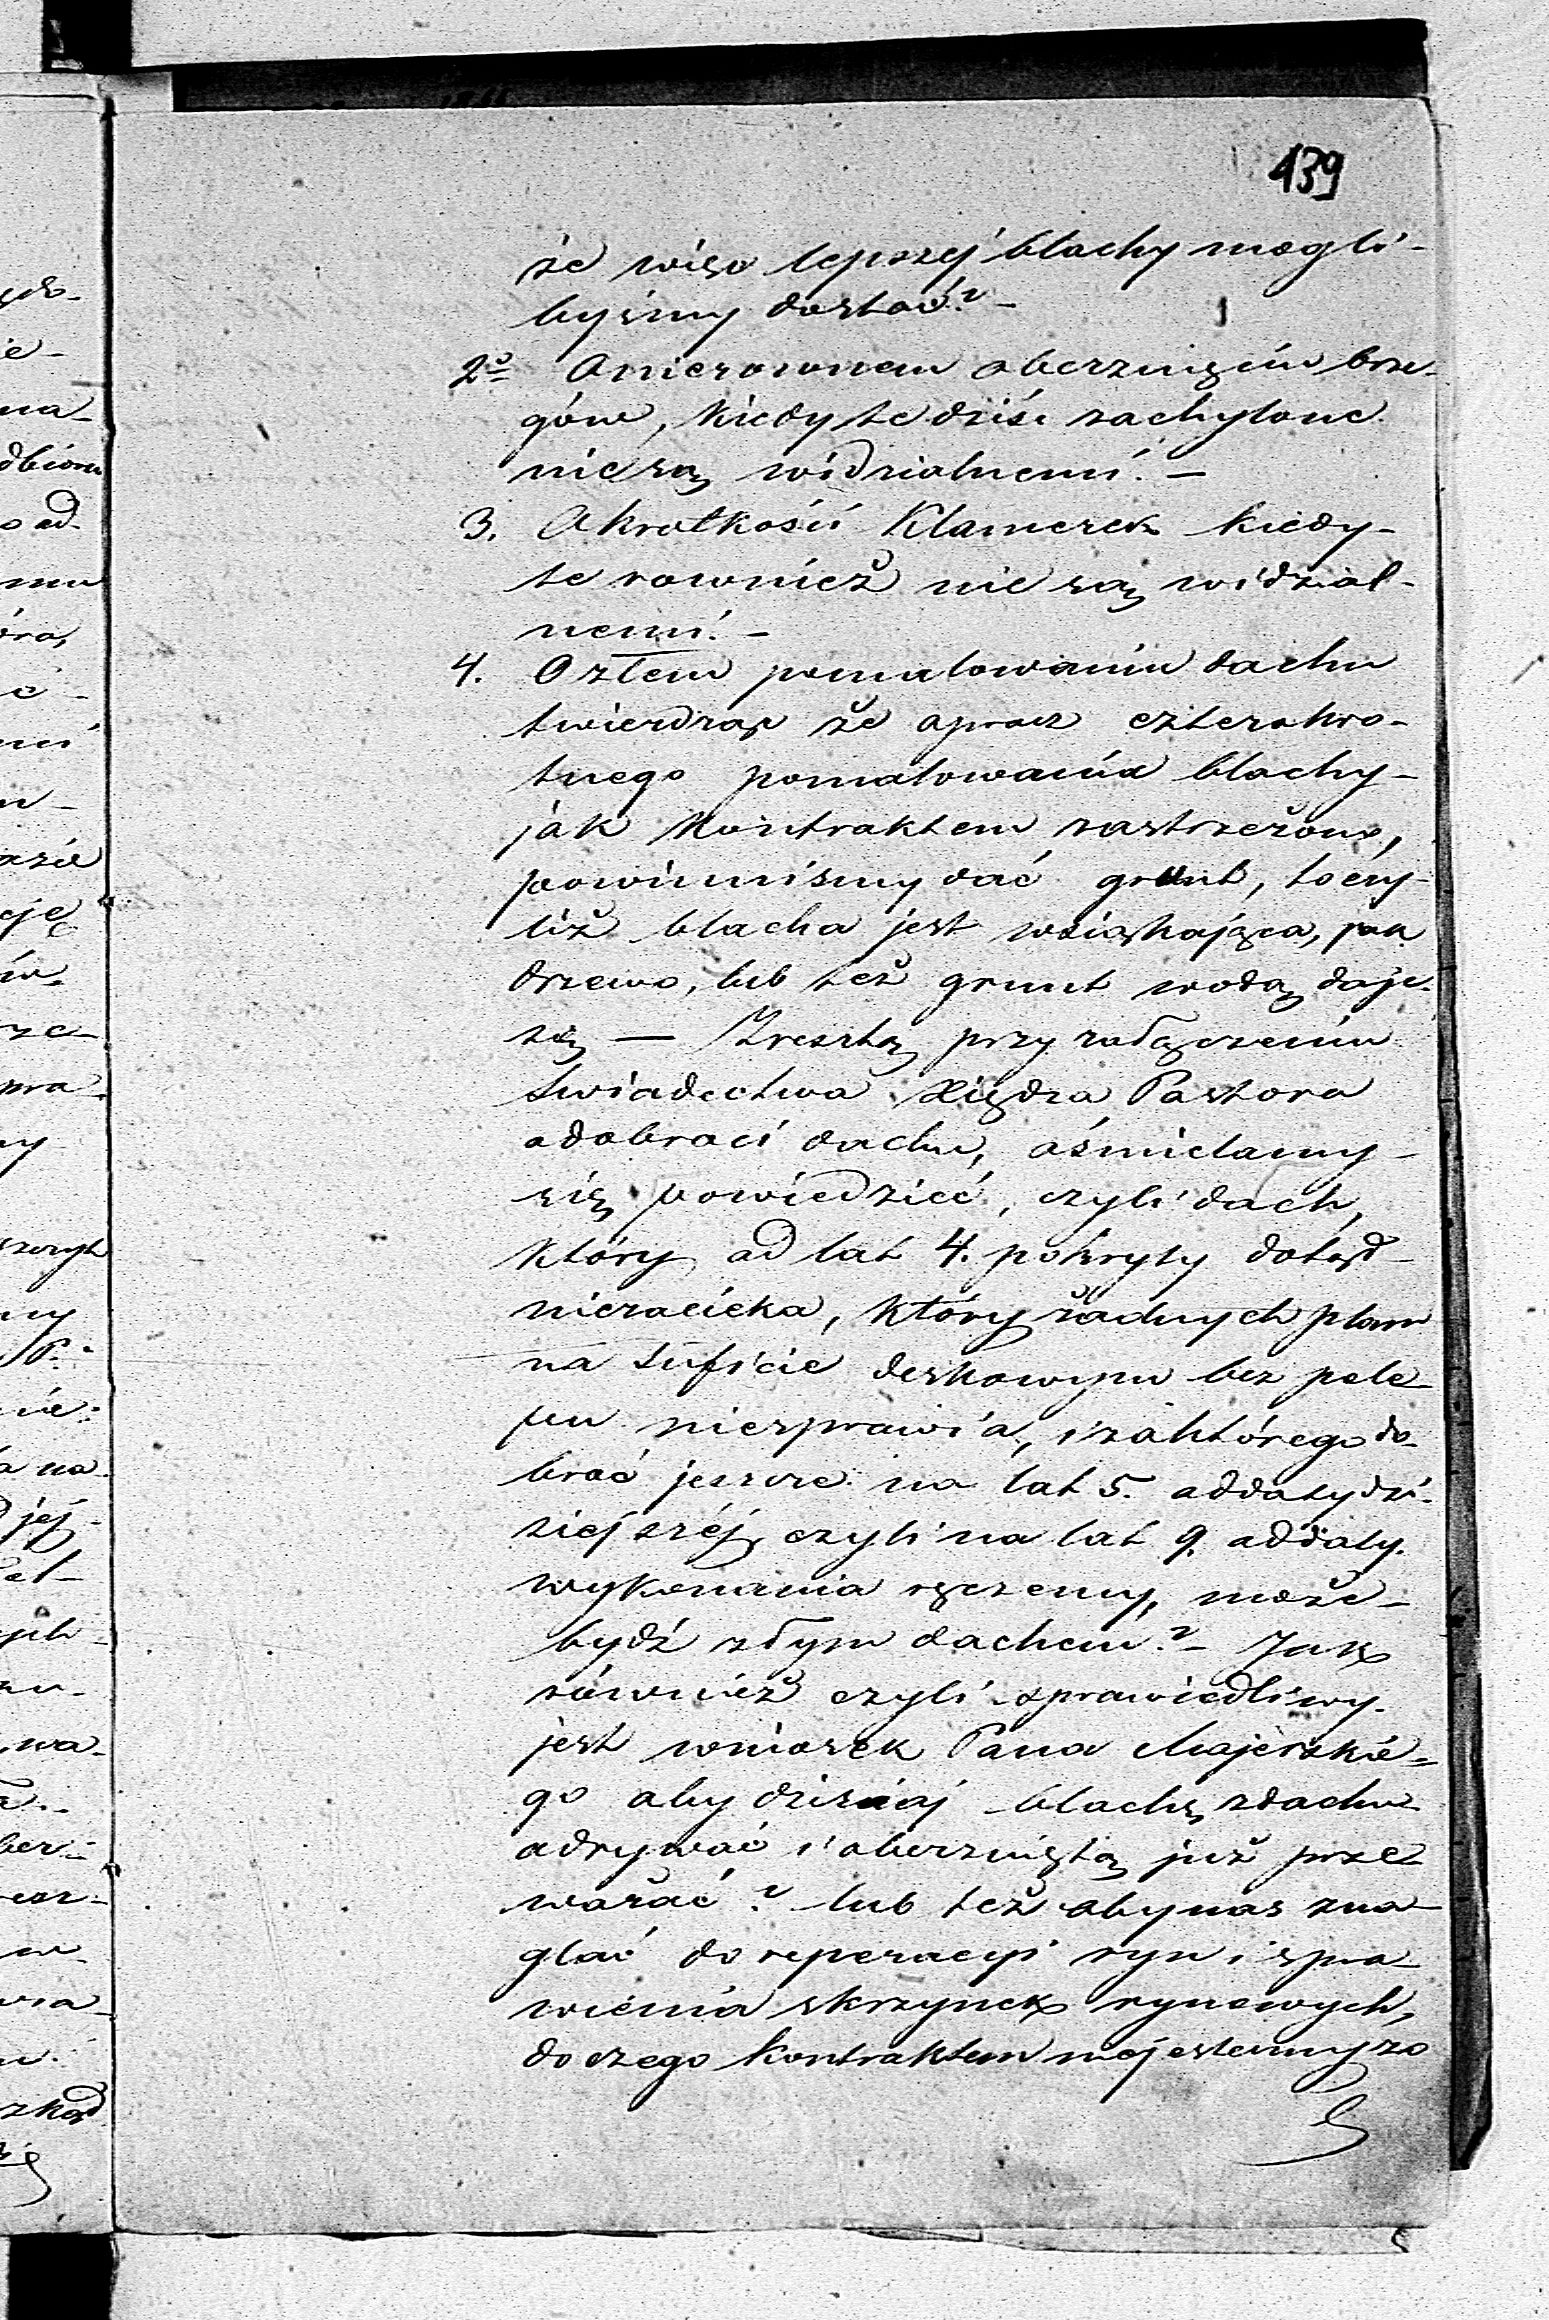 139
że więc lepszej blachy mogli-
byśmy dostać? –
2o O nierownem oberznięciu brze-
gów, kiedy te dziś zachylone
nie są widzialnemi. –
3. O krotkości Klamerek kiedy-
te rownież nie są widzial-
nemi. –
4. O złem pomalowaniu dachu
twierdząc że oprocz czterokro-
tnego pomalowania blachy-
jak Kontraktem zastrzeżono,
powinniśmy dać grunt, to czy-
liż blacha jest wsiąkająca, jak
drzewo, lub też grunt wodą daje
się — Zresztą przy załączeniu
świadectwa Xiędza Pastora
o dobroci dachu, ośmielamy-
się powiedzieć, czyli dach,
który od lat 4. pokryty dotąd-
niezacieka, który żadnych plam
na suficie deskowym bez pole-
pu niesprawia, i za którego do-
broć jeszcze na lat 5. od daty dzi-
siejszéj, czyli na lat 9. od daty
wykonania ręczemy, może-
bydź złym dachem? – Jak
również czyli sprawiedliwy
jest wniosek Pana Majerskie-
go aby dzisiaj blachę z dachu
odrywać i oberzniętą już prze
ważać? lub też aby nas zna-
glać do reperacyi ryn i spra-
wienia skrzynek rynowych,
do czego kontraktem niejestesmy zo
ędo-
ie-
na-
dbioru
o od-
mu
óra,
w-
azie
cję
ów-
rze-
pra-
ny
szych
ny
nie:
a na-
jej-
ych-
wa-
ber-
w-
wia-
zkąd